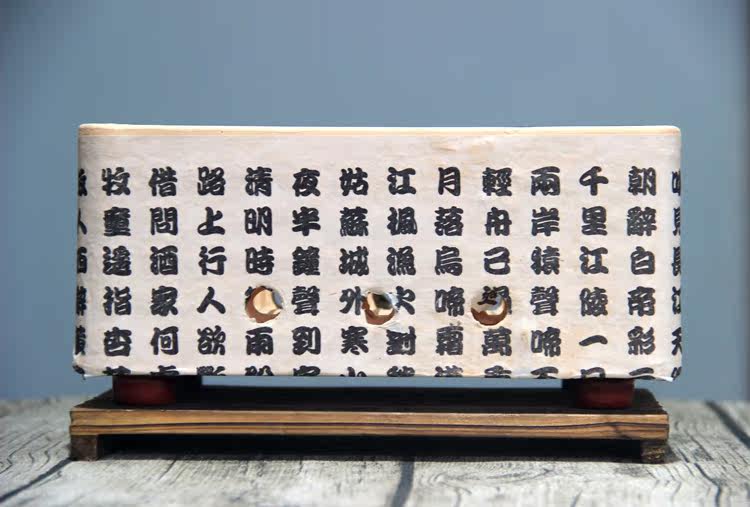 朝辭白帝彩
千里江陵一
兩岸猿聲啼
輕舟己過萬
月落烏啼霜
江楓漁火對
姑蘇城外寒
夜半鐘聲到
清明時雨
路上行人欲
借問酒家何
牧童遙指杏